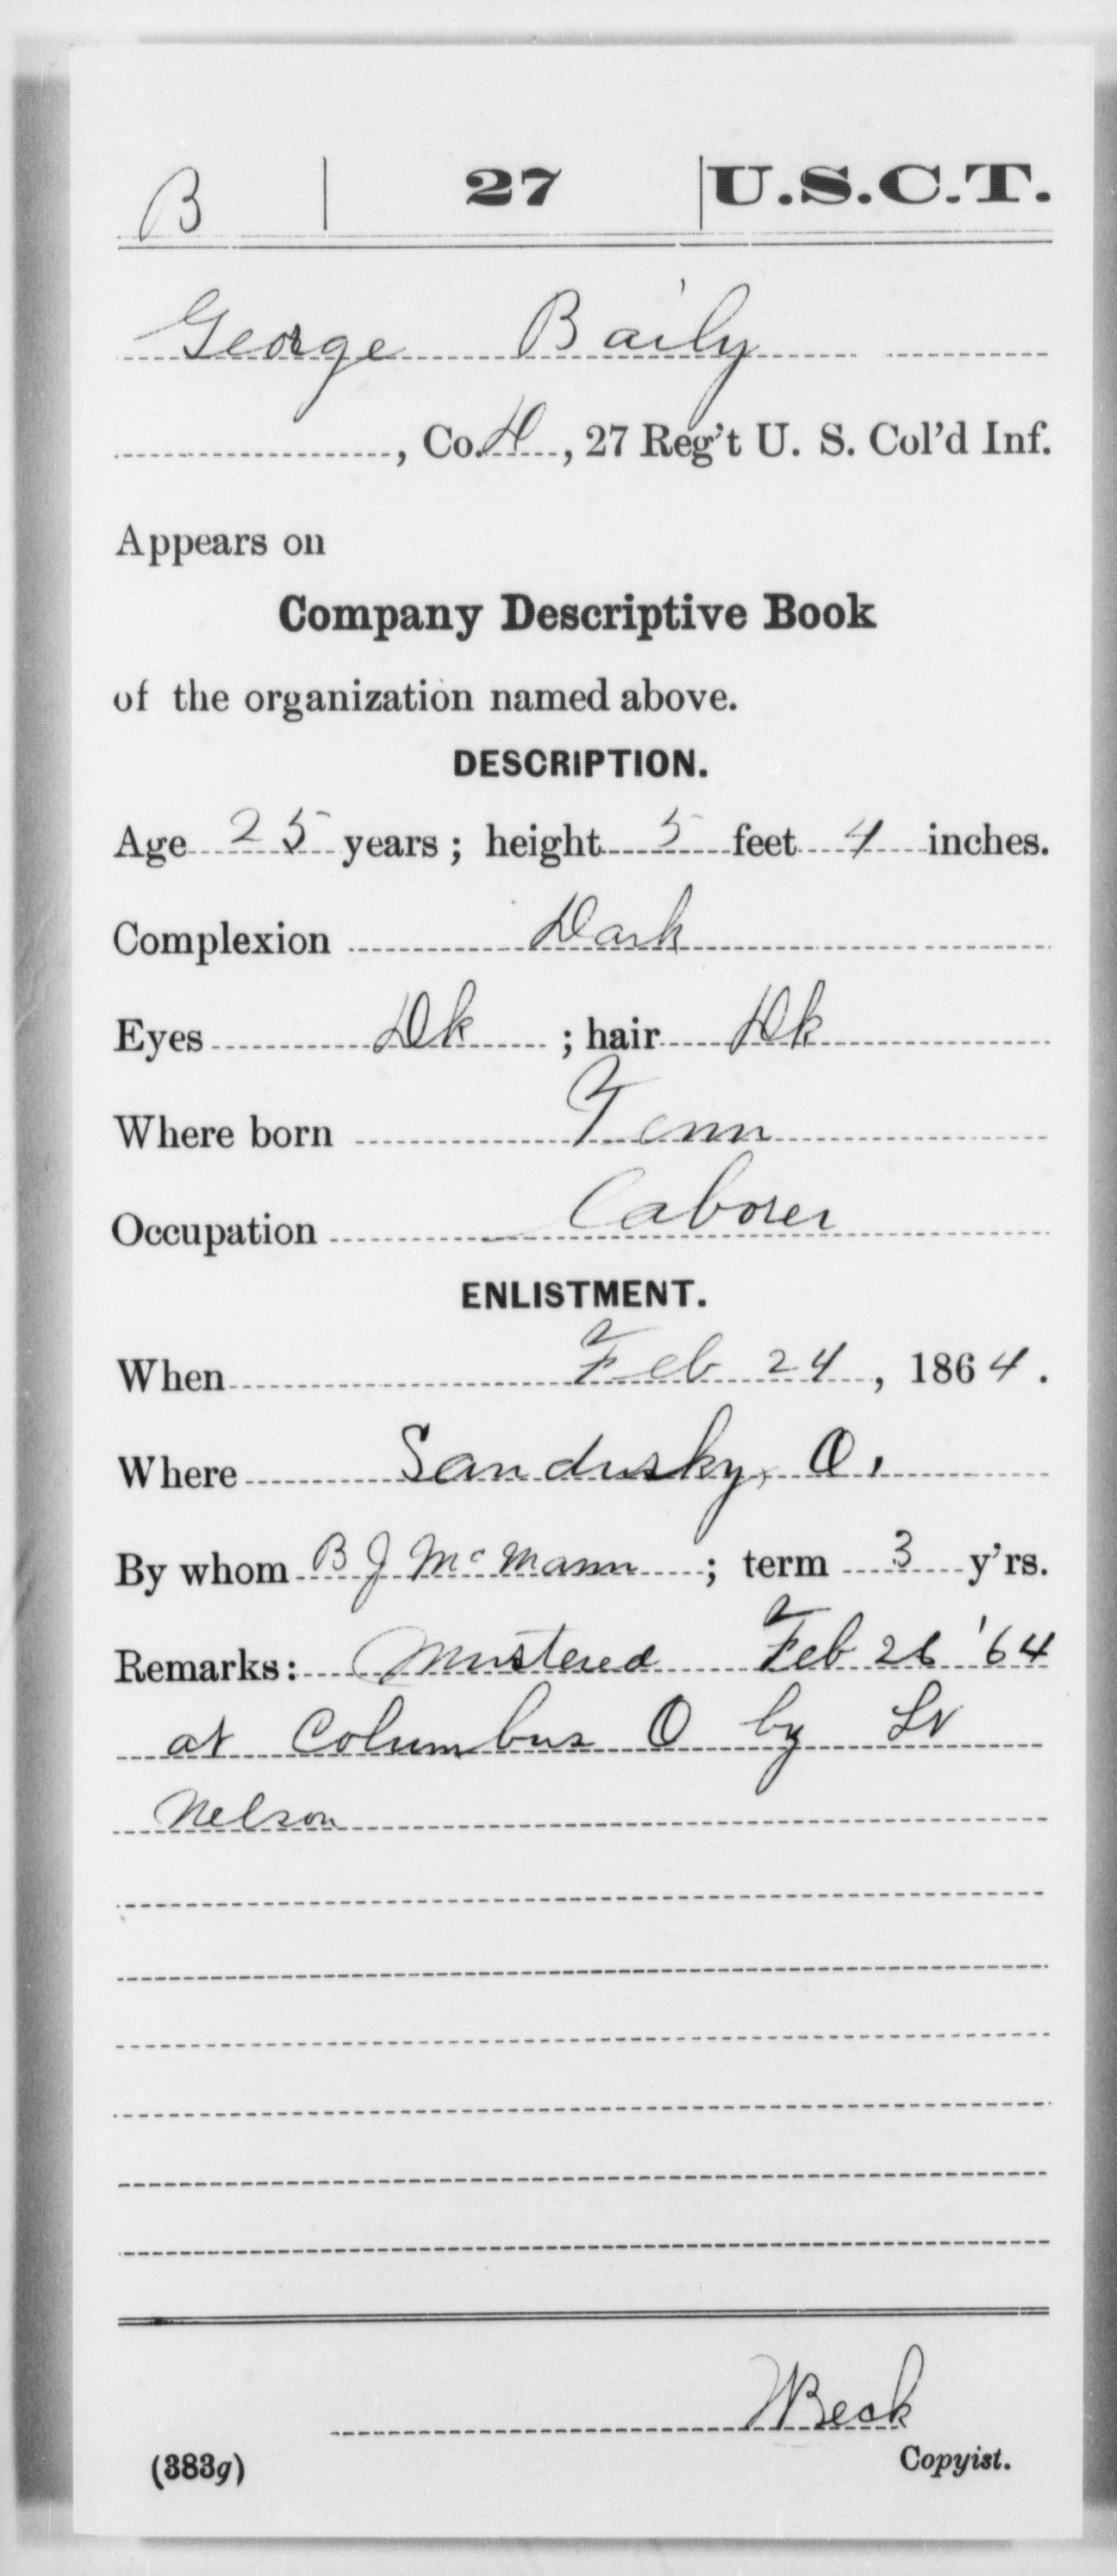 B 27 U.S.C.T.
George Baily
, Co. D, 27 Reg't U. S. Col'd Inf.
Appears on
Company Descriptive Book
of the organization named above.
DESCRIPTION.
Age 25 years; height 5 feet 4 inches.
Complexion Dark
Eyes Dk ; hair Dk
Where born Tenn
Occupation Laborer
ENLISTMENT.
When Feb 24, 1864.
Where Sandusky, O.
By whom B J McMann ; term 3 y'rs.
Remarks: Mustered Feb 26 '64
at Columbus O by Lt
Nelson
WBeck
(383g) Copyist.